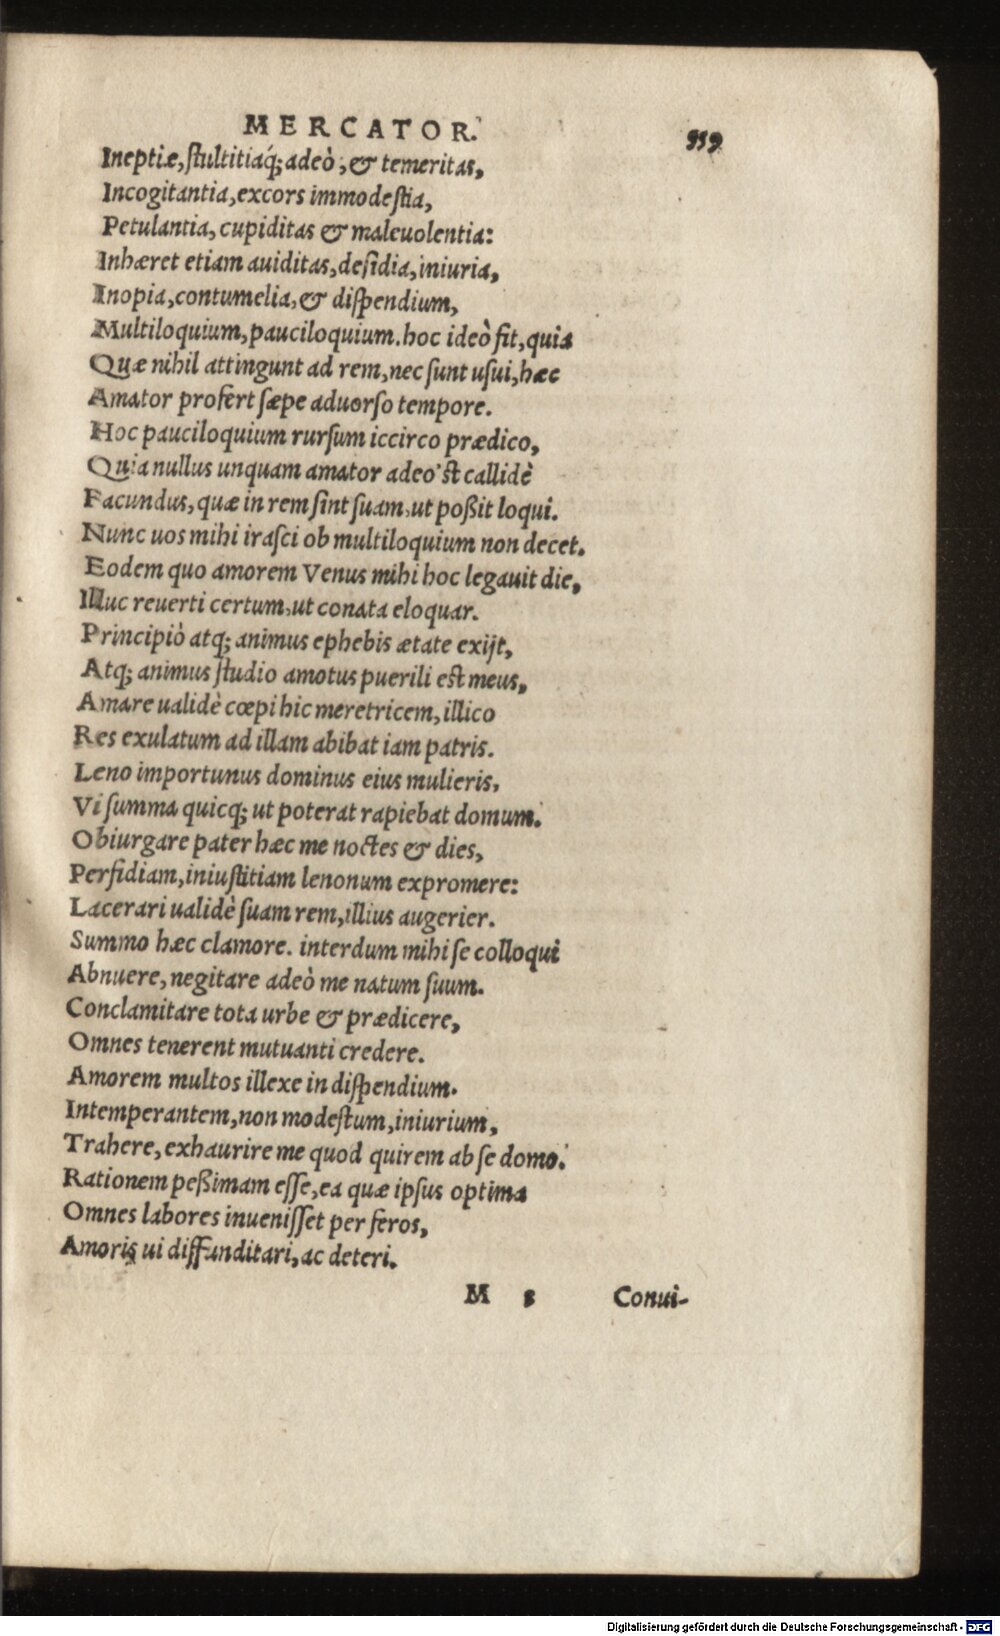 MERCATOR. 559
Ineptiæ, stultitiaq́; adeò, & temeritas,
Incogitantia, excors immodestia,
Petulantia, cupiditas & maleuolentia:
Inhæret etiam auiditas, desidia, iniuria,
Inopia, contumelia, & dispendium,
Multiloquium, pauciloquium. hoc ideò fit, quia
Quæ nihil attingunt ad rem, nec sunt usui, hæc
Amator profert sæpe aduorso tempore.
Hoc pauciloquium rursum iccirco prædico,
Quia nullus unquam amator adeo'st callidè
Facundus, quæ in rem sint suam, ut poßit loqui.
Nunc uos mihi irasci ob multiloquium non decet.
Eodem quo amorem Venus mihi hoc legauit die,
Illuc reuerti certum, ut conata eloquar.
Principiò atq; animus ephebis ætate exijt,
Atq; animus studio amotus puerili est meus,
Amare ualidè cœpi hic meretricem, illico
Res exulatum ad illam abibat iam patris.
Leno importunus dominus eius mulieris,
Vi summa quicq; ut poterat rapiebat domum.
Obiurgare pater hæc me noctes & dies,
Perfidiam, iniustitiam lenonum expromere:
Lacerari ualidè suam rem, illius augerier.
Summo hæc clamore. interdum mihi se colloqui
Abnuere, negitare adeò me natum suum.
Conclamitare tota urbe & prædicere,
Omnes tenerent mutuanti credere.
Amorem multos illexe in dispendium.
Intemperantem, non modestum, iniurium,
Trahere, exhaurire me quod quirem ab se domo.
Rationem peßimam esse, ea quæ ipsus optima
Omnes labores inuenisset per feros,
Amoris ui diffunditari, ac deteri.
M 5 Conui-
Digitalisierung gefördert durch die Deutsche Forschungsgemeinschaft - DFG